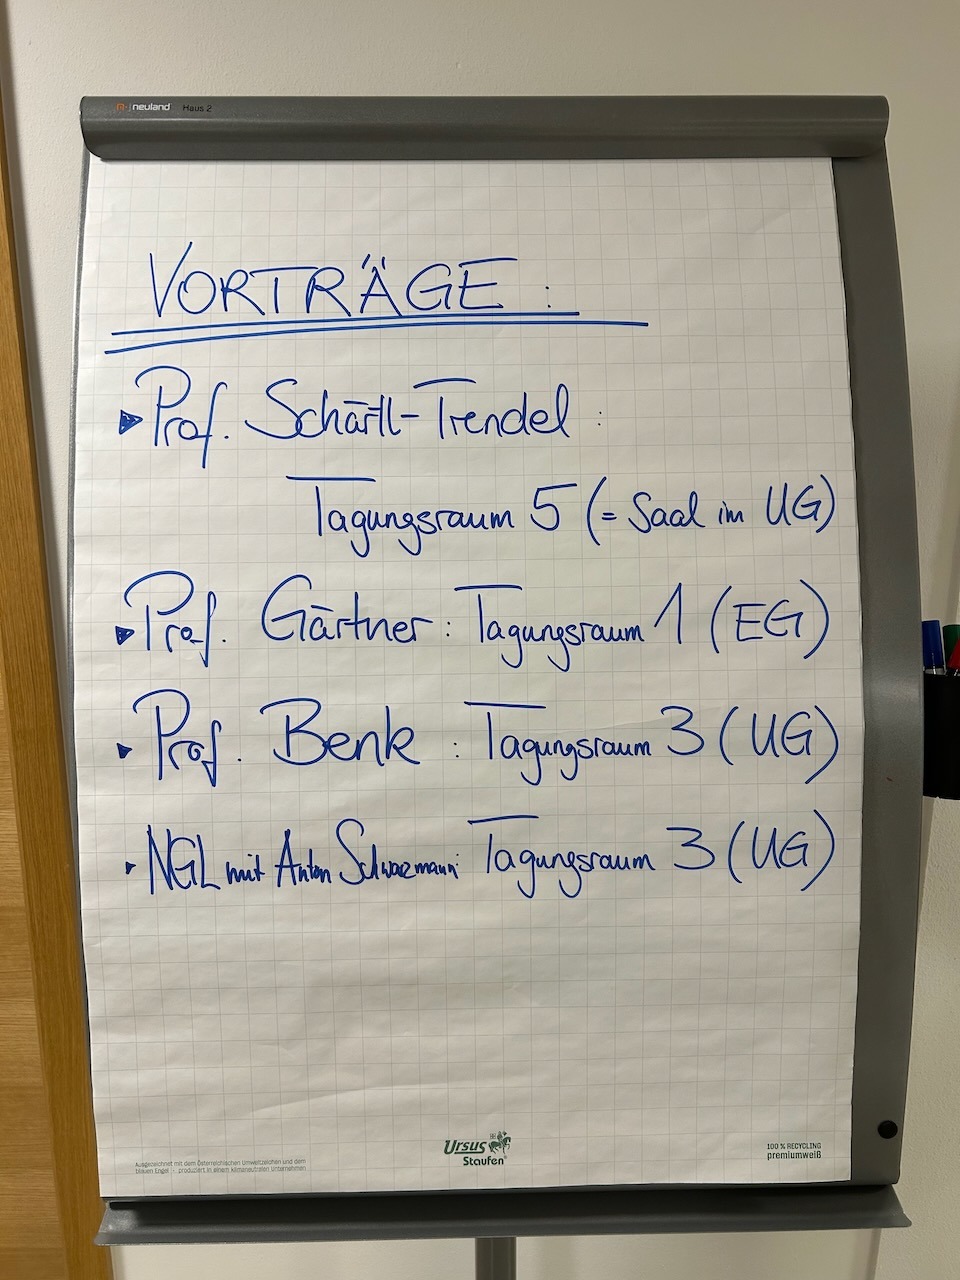 neuland Haus 2
VORTRÄGE:
Prof. Schärtl-Trendel:
Tagungsraum 5 (= Saal im UG)
Prof. Gärtner: Tagungsraum 1 (EG)
Prof. Benk: Tagungsraum 3 (UG)
NGL mit Anton Schwarzmann: Tagungsraum 3 (UG)
Ursus
Staufen
100 % RECYCLING
premiumweiß
Ausgezeichnet mit dem Österreichischen Umweltzeichen und dem
blauen Engel - produziert in einem klimaneutralen Unternehmen